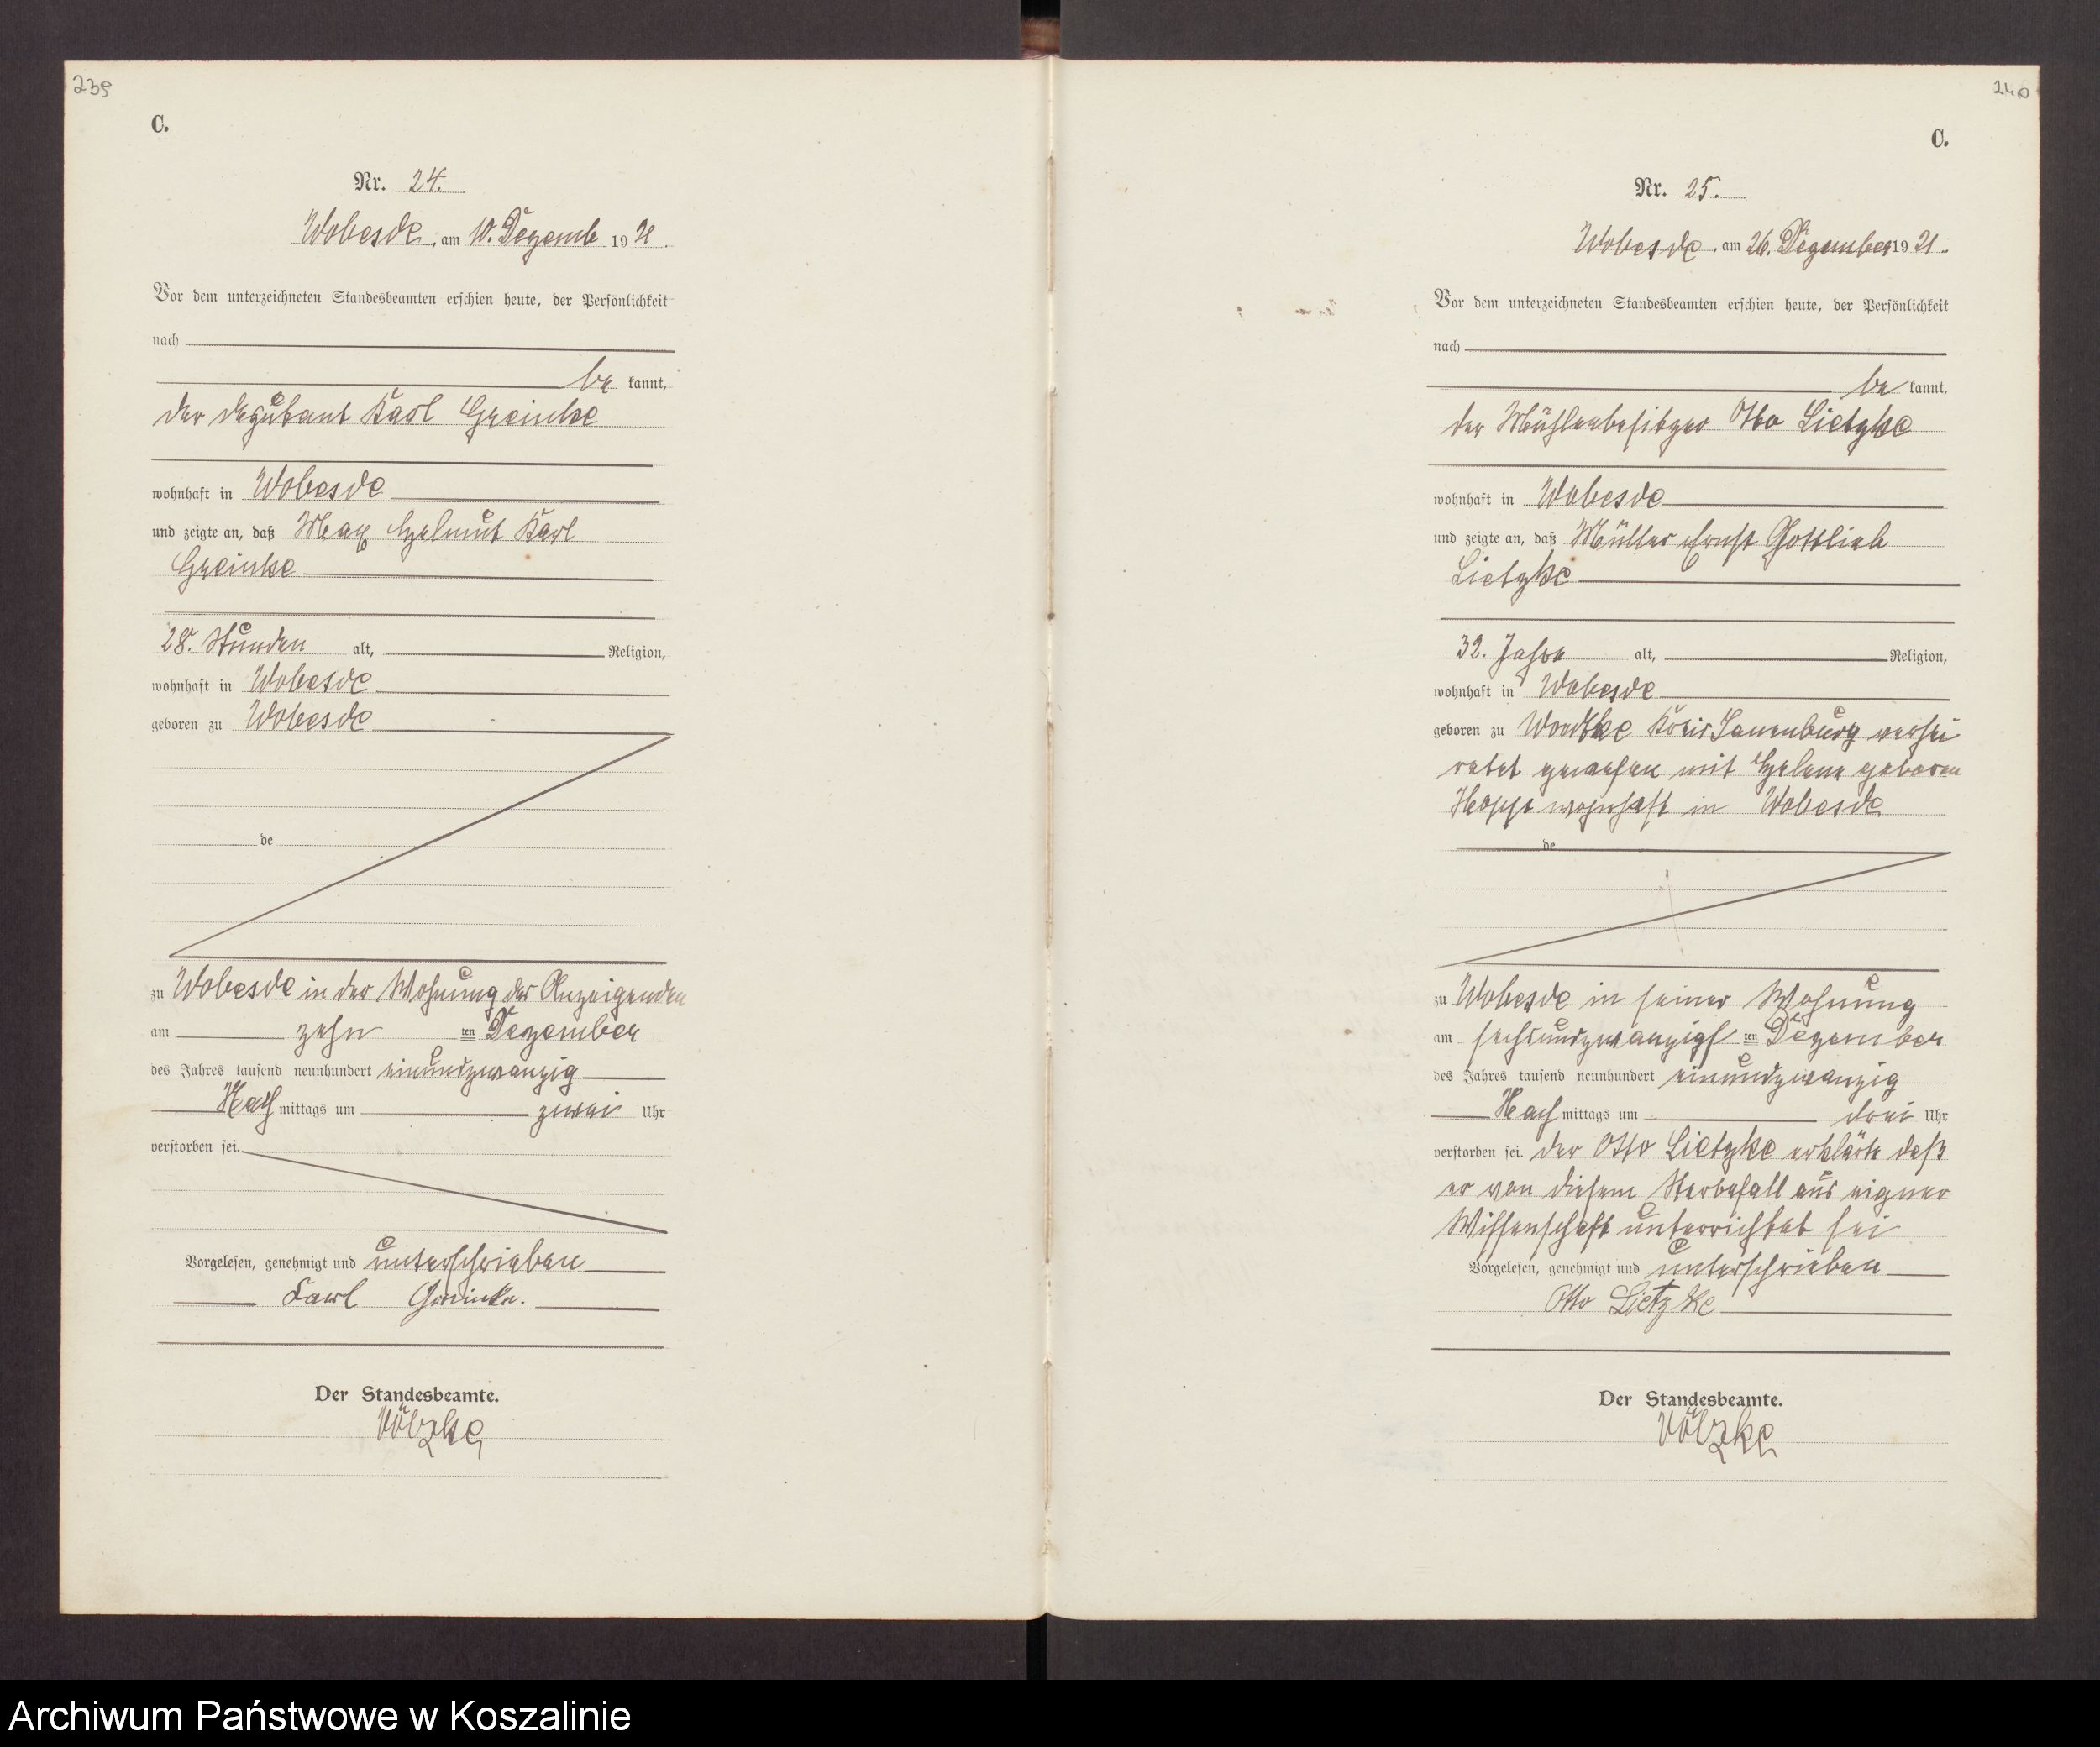 239
C.
Nr. 24.
Wobesde, am 10. Dezemb 1921.
Vor dem unterzeichneten Standesbeamten erschien heute, der Persönlichkeit
nach
be kannt,
der Deputant Karl Greinke
wohnhaft in Wobesde
und zeigte an, daß Max Helmut Karl
Greinke
28. Stunden alt, Religion,
wohnhaft in Wobesde
geboren zu Wobesde
de
zu Wobesde in der Wohnung des Anzeigenden
am zehn ten Dezember
des Jahres tausend neunhundert einundzwanzig
Nach mittags um zwei Uhr
verstorben sei.
Vorgelesen, genehmigt und unterschrieben
Karl Greinke.
Der Standesbeamte.
Völzke
240
C.
Nr. 25.
Wobesde, am 26. Dezember 1921.
Vor dem unterzeichneten Standesbeamten erschien heute, der Persönlichkeit
nach
be kannt,
der Mühlenbesitzer Otto Lietzke
wohnhaft in Wobesde
und zeigte an, daß Müller Ernst Gottlieb
Lietzke
32. Jahre alt, Religion,
wohnhaft in Wobesde
geboren zu Kreis Lauenburg verhei
ratet gewesen mit Helene geboren
wohnhaft in Wobesde
de
zu Wobesde in seiner Wohnung
am sechsundzwanzigs ten Dezember
des Jahres tausend neunhundert einundzwanzig
Nach mittags um drei Uhr
verstorben sei. der Otto Lietzke erklärte daß
er von diesem Sterbefall aus eigner
Wissenschaft unterrichtet sei
Vorgelesen, genehmigt und unterschrieben
Otto Lietzke
Der Standesbeamte.
Völzke
Archiwum Państwowe w Koszalinie